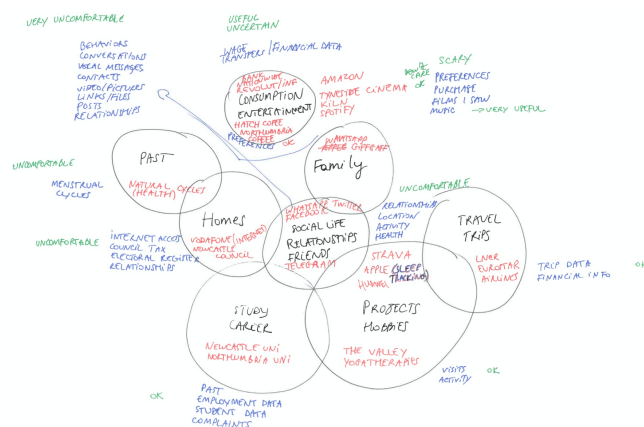 VERY UNCOMFORTABLE
BEHAVIORS
CONVERSATIONS
VOCAL MESSAGES
CONTACTS
VIDEO/PICTURES
LINKS/FILES
POSTS
RELATIONSHIPS
USEFUL
UNCERTAIN
WAGE
TRANSFERS/FINANCIAL DATA
BANK
NATIONWIDE
REVOLUT/
CONSUMPTION
ENTERTAINMENT
HATCH COFEE
NORTHUMBRIA
COFFEE
PREFERENCES
OK
AMAZON
TYNESIDE CINEMA
KILN
SPOTIFY
DON'T
CARE
OK
SCARY
PREFERENCES
PURCHASE
FILMS I SAW
MUSIC → VERY USEFUL
PAST
NATURAL CYCLES
(HEALTH)
UNCOMFORTABLE
MENSTRUAL
CYCLES
WHATSAPP
GIFFGAFF
Family
Homes
VODAFONE (INTERNET)
NEWCASTLE
COUNCIL
UNCOMFORTABLE
INTERNET ACCES
COUNCIL TAX
ELECTORAL REGISTER
RELATIONSHIPS
WHATSAPP TWITTER
FACEBOOK
SOCIAL LIFE
RELATIONSHIPS
FRIENDS
TELEGRAM
UNCOMFORTABLE
RELATIONSHIP
LOCATION
ACTIVITY
HEALTH
TRAVEL
TRIPS
LNER
EUROSTAR
AIRLINES
TRIP DATA
FINANCIAL INFO
STRAVA
APPLE (SLEEP
TRACKING)
PROJECTS
HOBBIES
THE VALLEY
YOGATHERAPIES
VISITS
ACTIVITY
OK
STUDY
CAREER
NEWCASTLE UNI
NORTHUMBRIA UNI
OK
PAST
EMPLOYMENT DATA
STUDENT DATA
COMPLAINTS